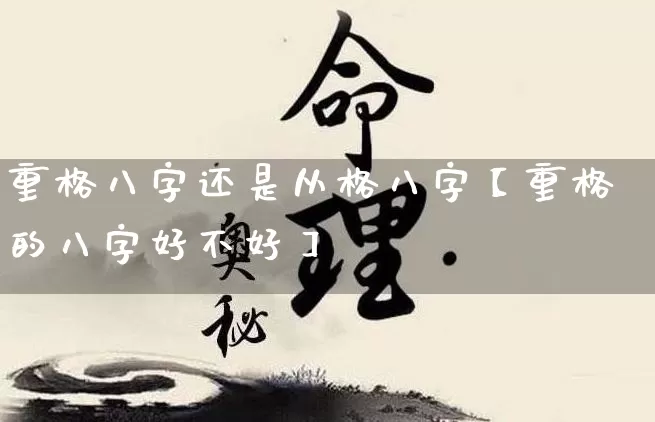 命理
奥秘
重格八字还是从格八字【重格
的八字好不好】